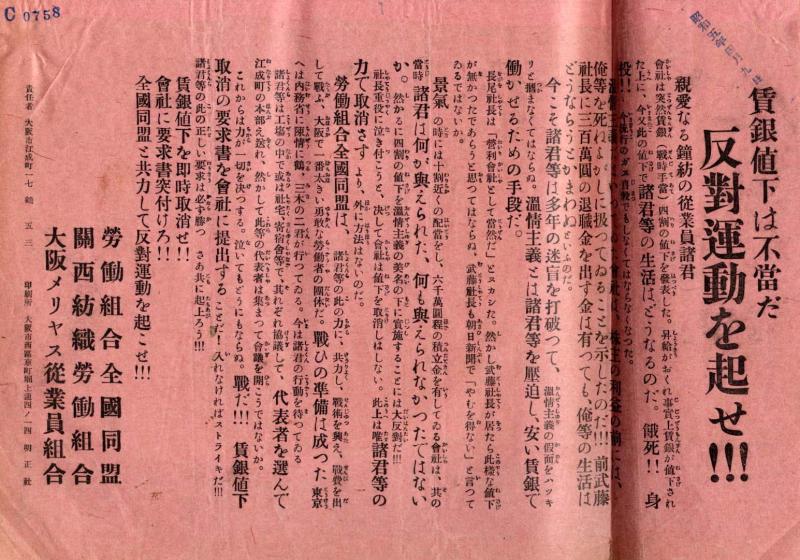 C 0758
昭和五年四月九日
賃銀値下は不當だ
反對運動を起せ!!!
親愛なる鐘紡の従業員諸君
會社は突然賃銀(戰時手當)四割の値下を發表した。昇給がおくれ事實上賃銀が値下され
た上に、今又此の値下だ諸君等の生活は、どうなるのだ。餓死!! 身
投!! 今流行のガス自殺でもしなくてはならなくなつた。
溫情主義
會社は、株主の利益の前には、
俺等を死ねよがしに扱つてゐることを示したのだ!!! 前武藤
社長に三百萬圓の退職金を出す金は有つても、俺等の生活は
どうならうとかまわぬといふのだ。
今こそ諸君等は多年の迷盲を打破つて、溫情主義の假面をハツキ
リと摑まなくてはならぬ。溫情主義とは諸君等を壓迫し、安い賃銀で
働かせるための手段だ。
長尾社長は「營利會社として當然だ」とヌカシた。然かし武藤社長が居たら此樣な値下
が無かつたであらうと思つてはならぬ、武藤社長も朝日新聞で「やむを得ない」と言つて
ゐるではないか。
景氣の時には十割近くの配當をし、六千萬圓程の積立金を有してゐる會社は、其の
當時諸君は何が與えられた、何も與えられなかつたではない
か。然かるに四割の値下を溫情主義の美名の下に實施することには大反對だ!!!
社長重役に泣き付こうと、決して會社は値下を取消しはしない。此上は唯諸君等の
力で取消さすより、外に方法はないのだ。
勞働組合全國同盟は、諸君等の此の力に、共力し、戰術を與え、戰費を出
して戰ふ、大阪で一番太きい勇敢な勞働者の團体だ。戰ひの準備は成つた東京
へは内務省に陳情に鶴、三木の二君が行つてゐる。今は諸君の行動を待つてゐる
諸君等は工塲の中で或は社宅、寄宿舍等で、其れぞれ協議して、代表者を選んで
江成町の本部え送れ、然かして此等の代表者は集まつて會議を開こうではないか。
これからは力が一切を決つする。泣いてもどうにもならぬ。戰だ!!! 賃銀値下
取消の要求書を會社に提出することだ!入れなければストライキだ!!!
諸君等の此の正しい要求は必ず勝つ さあ共に起上ろう!!!
賃銀値下を即時取消せ!!
會社に要求書突付けろ!!
全國同盟と共力して反對運動を起こせ!!!
勞働組合全國同盟
關西紡織勞働組合
大阪メリヤス従業員組合
責任者 大阪市江成町一七 鶴 五三
印刷所 大阪市西區京町堀上通四ノ一四 明正社